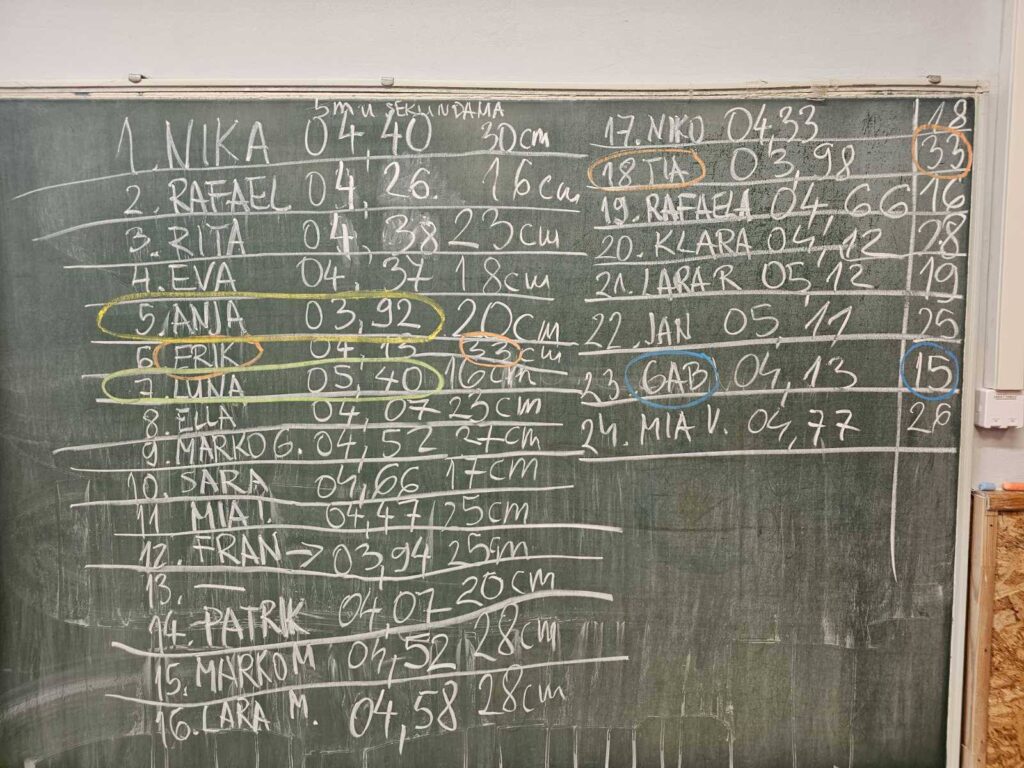 5m u SEKUNDAMA
1. NIKA 04,40 30cm
2. RAFAEL 04,26. 16cm
3. RITA 04,38 23cm
4. EVA 04,37 18cm
5. ANJA 03,92 20cm
6 ERIK 04,15 33cm
7. LUNA 05,40 16cm
8. ELLA 04,07 23cm
9. MARKO G. 04,52 27cm
10. SARA 04,66 17cm
11 MIA T. 04,47 25cm
12. FRAN → 03,94 25cm
13. —
14. PATRIK 04,07 20cm
15. MARKO M 04,52 28cm
16. LARA M. 04,58 28cm
17. NIKO 04,33 18
18 TIA 03,98 33
19. RAFAELA 04,66 16
20. KLARA 04,12 28
21. LARA R 05,12 19
22. JAN 05,11 25
23. GAB 04,13 15
24. MIA V. 04,77 26